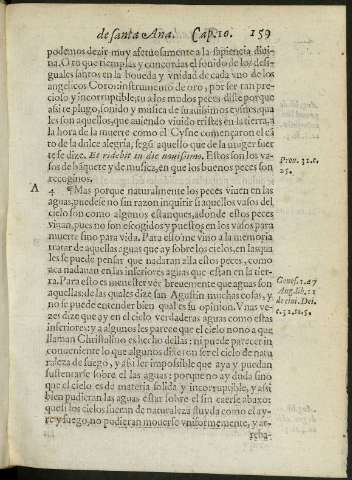 de santa Ana. Cap.10. 159
podemos dezir muy afetuosamente a la sapiencia diui-
na. O tu que templas y concordas el sonido de los desi-
guales santos en la boueda y vnidad de cada vno de los
angelicos Coros: instrumento de oro, por ser tan pre-
cioso y incorruptible, tu a los mudos peces diste porque
assi te plugo, sonido y musica de suauissimos cisnes, qua
les son aquellos, que auiendo viuido tristes en la tierra, a
la hora de la muerte como el Cysne començaron el cã
to de la dulce alegria, segũ aquello que de la muger fuer
te se dize. Et ridebit in die nouissimo. Estos son los va-
sos de bãquete y de musica, en que los buenos peces son
recogidos.
Prou. 31.c.
25.
A 4 ¶ Mas porque naturalmente los peces viuen en las
aguas, puedese no sin razon inquirir si aquellos vasos del
cielo son como algunos estanques, adonde estos peces
viuan, pues no son escogidos y puestos en los vasos para
muerte sino para vida. Para esto me vino a la memoria
tratar de aquellas aguas que ay sobre los cielos, en las qua
les se puede pensar que nadaran alla estos peces, como
aca nadauan en las inferiores aguas que estan en la tier-
ra. Para esto es menester vèr breuemente que aguas son
aquellas: de las quales dize san Agustin muchas cosas, y
no se puede entender bien qual es su opinion. Vnas ve-
zes dize que ay en el cielo verdaderas aguas como estas
inferiores: y a algunos les parece que el cielo nono a que
llaman Christalino es hecho dellas: ni puede parecer in
conueniente lo que algunos dixeron ser el cielo de natu
raleza de fuego, y assi ser impossible que aya y puedan
sustentarse sobre el las aguas: porque no ay duda sino
que el cielo es de materia solida y incorruptible, y assi
bien pudieran las aguas estar sobre el sin caerse abaxo:
que si los cielos fueran de naturaleza fluyda como el ay-
re y fuego, no pudieran mouerse vniformemente, y ar-
Genes. 1.a.7
Aug. lib. 11
de ciui. Dei.
c. 34.